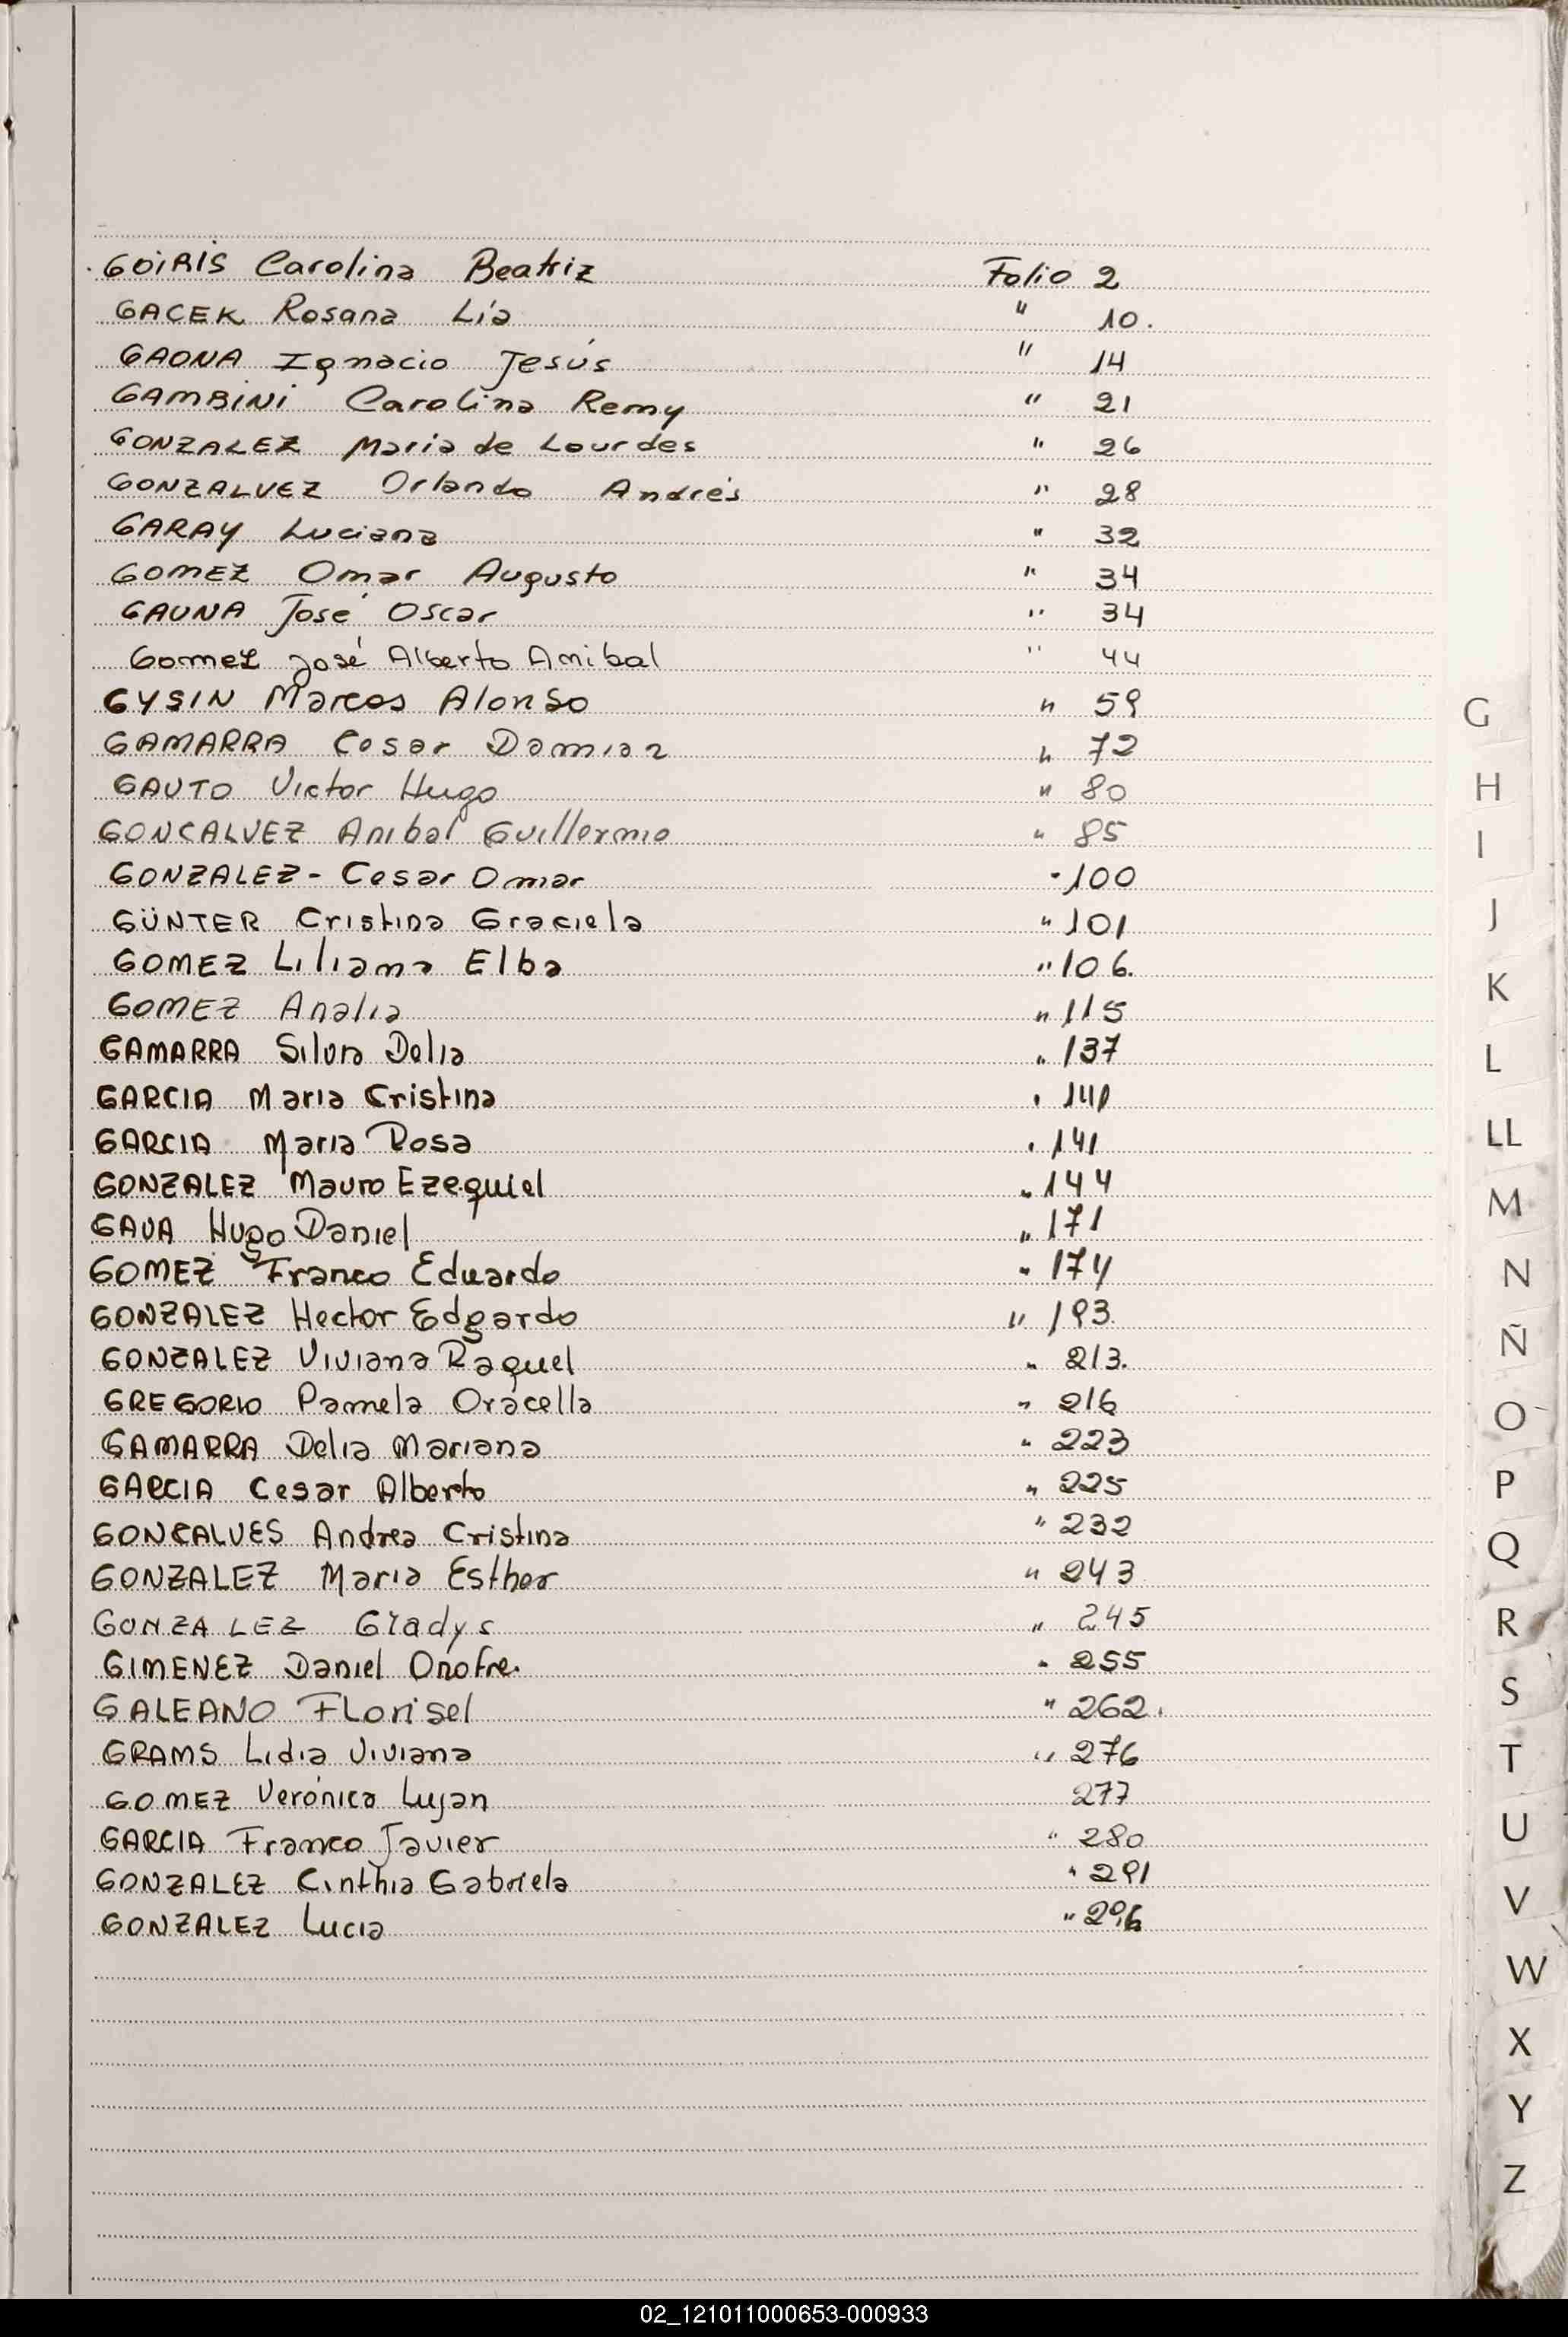 GOIRIS Carolina Beatriz Folio 2
GACEK Rosana Lía " 10.
GAONA Ignacio Jesús " 14
GAMBINI Carolina Remy " 21
GONZALEZ Maria de Lourdes " 26
GONZALVEZ Orlando Andrés " 28
GARAY Luciana " 32
GOMEZ Omar Augusto " 34
GAUNA José Oscar " 34
Gomez José Alberto Anibal " 44
GYSIN Marcos Alonso " 59
GAMARRA Cesar Damian " 72
GAUTO Victor Hugo " 80
GONCALVEZ Anibal Guillermo " 85
GONZALEZ - Cesar Omar " 100
GÜNTER Cristina Graciela " 101
GOMEZ Liliana Elba " 106.
GOMEZ Analia " 115
GAMARRA Silvia Delia " 137
GARCIA Maria Cristina " 141
GARCIA Maria Rosa " 141
GONZALEZ Mauro Ezequiel " 144
GAVA Hugo Daniel " 171
GOMEZ Franco Eduardo " 174
GONZALEZ Hector Edgardo " 193.
GONZALEZ Viviana Raquel " 213.
GREGORIO Pamela Oracella " 216
GAMARRA Delia Mariana " 223
GARCIA Cesar Alberto " 225
GONCALVES Andrea Cristina " 232
GONZALEZ Maria Esther " 243
GONZALEZ Gladys " 245
GIMENEZ Daniel Onofre. " 255
GALEANO Florisel " 262.
GRAMS Lidia Viviana " 276
GOMEZ Verónica Lujan 277
GARCIA Franco Javier " 280
GONZALEZ Cinthia Gabriela " 291
GONZALEZ Lucia " 296
G
H
I
J
K
L
LL
M
N
Ñ
O
P
Q
R
S
T
U
V
W
X
Y
Z
02_121011000653-000933